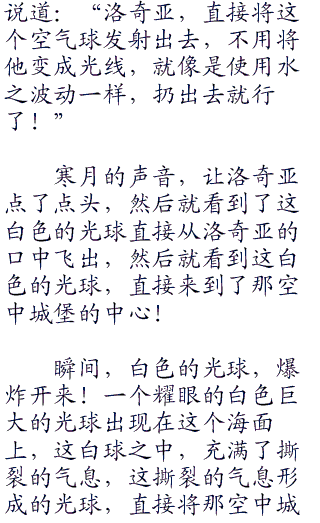 说道：“洛奇亚，直接将这
个空气球发射出去，不用将
他变成光线，就像是使用水
之波动一样，扔出去就行
了！”
寒月的声音，让洛奇亚
点了点头，然后就看到了这
白色的光球直接从洛奇亚的
口中飞出，然后就看到这白
色的光球，直接来到了那空
中城堡的中心！
瞬间，白色的光球，爆
炸开来！一个耀眼的白色巨
大的光球出现在这个海面
上，这白球之中，充满了撕
裂的气息，这撕裂的气息形
成的光球，直接将那空中城